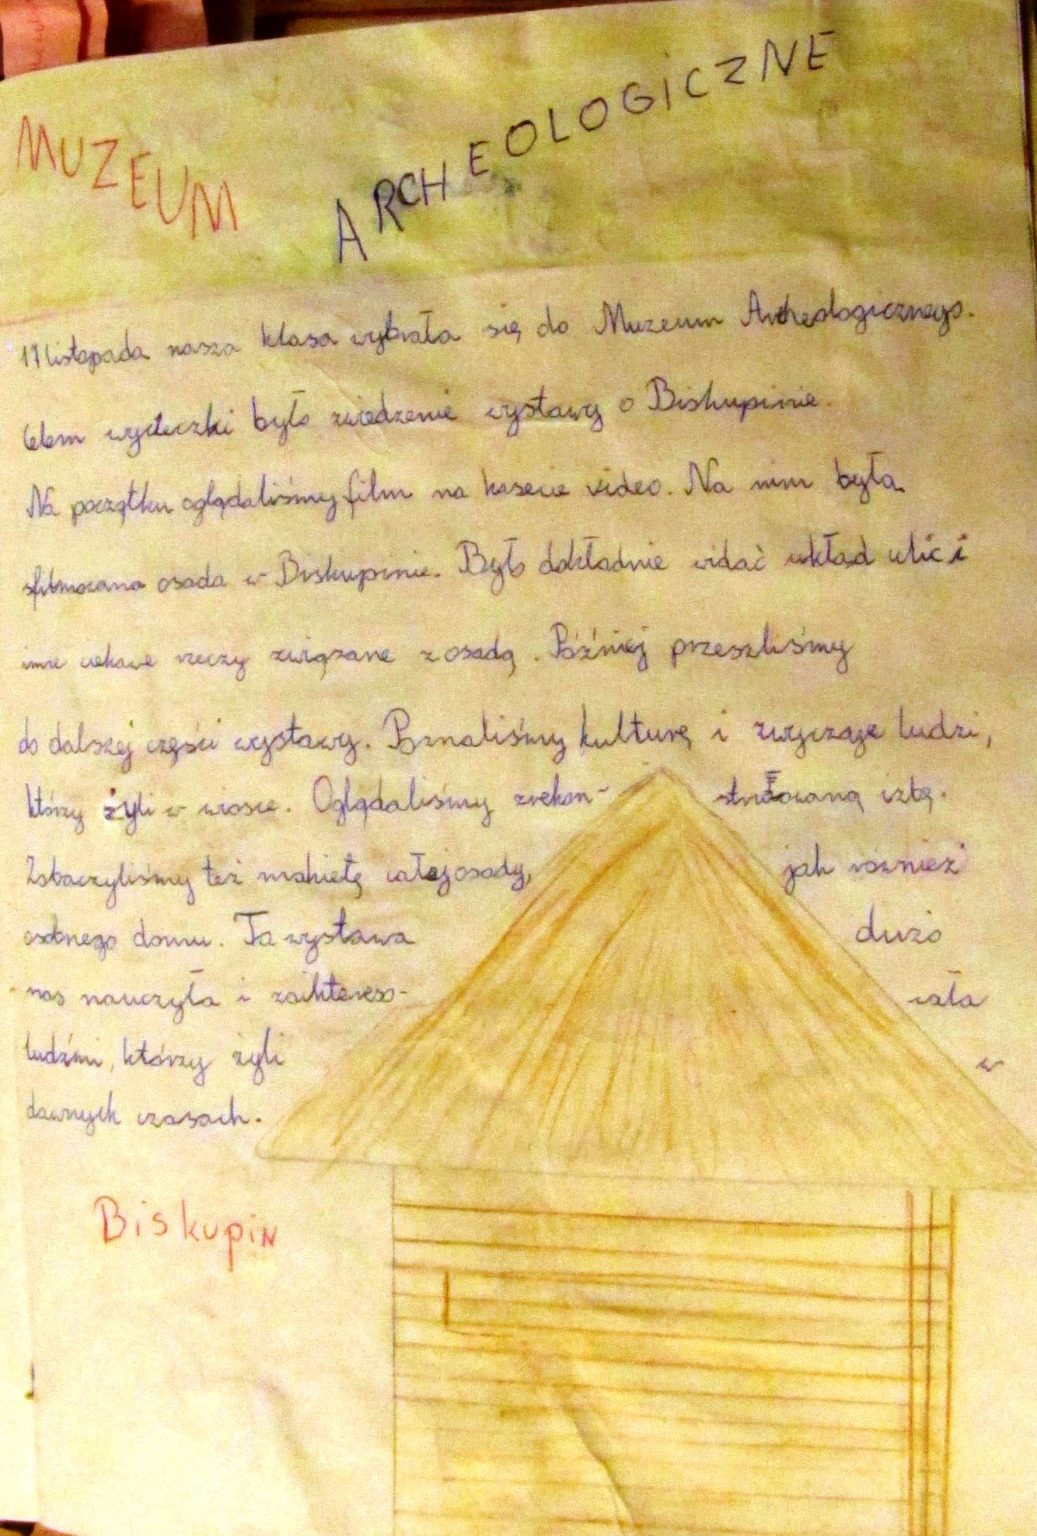 MUZEUM ARCHEOLOGICZNE
listopada nasza klasa wybrała się do Muzeum Archeologicznego.
Celem wycieczki było zwiedzenie wystawy o Biskupinie.
Na początku oglądaliśmy film na kasecie video. Na nim była
sfilmowana osada w Biskupinie. Było dokładnie widać układ ulic i
inne ciekawe rzeczy związane z osadą. Później przeszliśmy
do dalszej części wystawy. Poznaliśmy kulturę i zwyczaje ludzi,
którzy żyli w wiosce. Oglądaliśmy zrekon- struowaną izbę.
Zobaczyliśmy też makietę całej osady, jak również
osobnego domu. Ta wystawa dużo
nas nauczyła i zaintereso- wała
ludźmi, którzy żyli w
dawnych czasach.
Biskupin